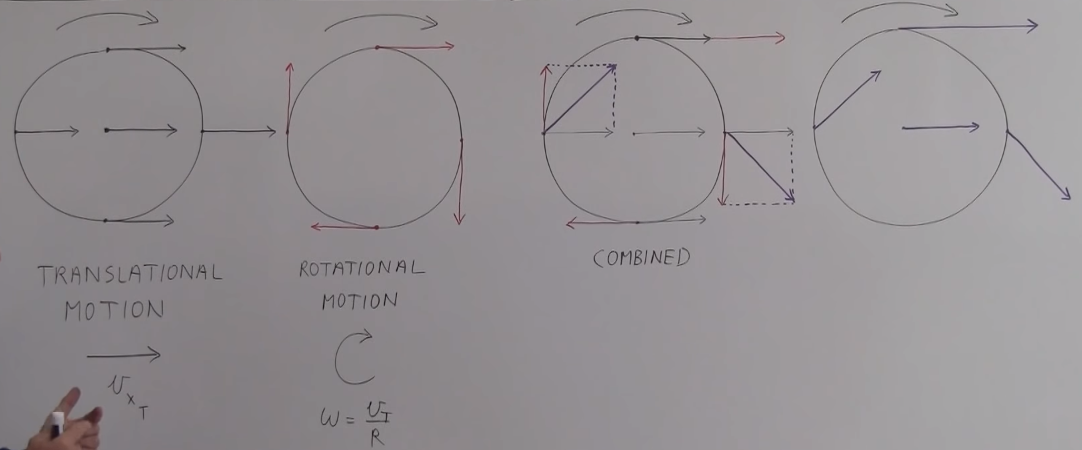 TRANSLATIONAL
MOTION
v_{x_T}
ROTATIONAL
MOTION
ω = v_T / R
COMBINED